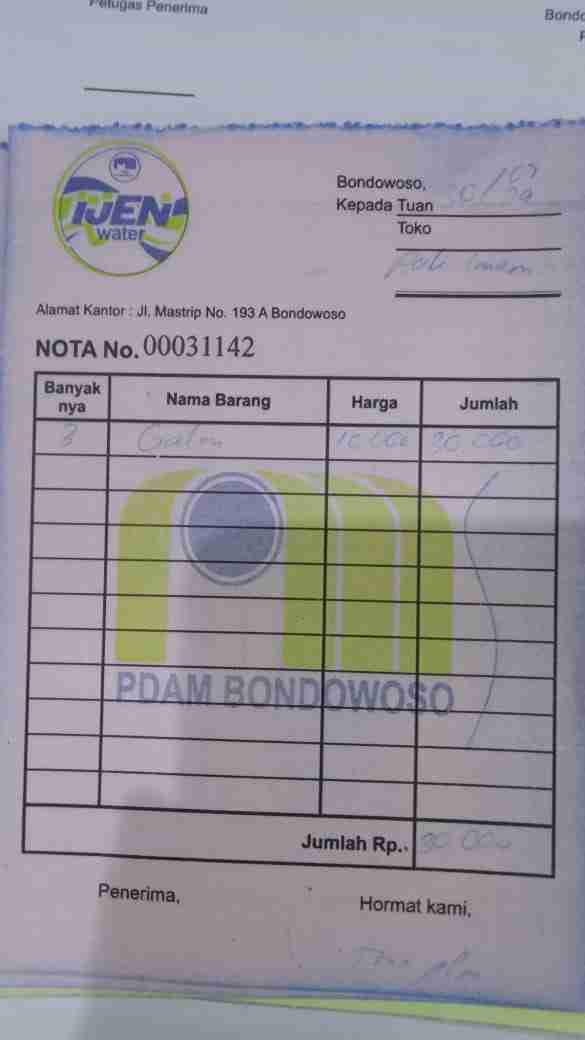 Petugas Penerima
Bondo
IJEN
water
Bondowoso,
Kepada Tuan
Toko
Alamat Kantor : Jl. Mastrip No. 193 A Bondowoso
NOTA No. 00031142
Banyak nya Nama Barang Harga Jumlah
3 Galon 10.000 30.000
PDAM BONDOWOSO
Jumlah Rp.. 30.000
Penerima,
Hormat kami,